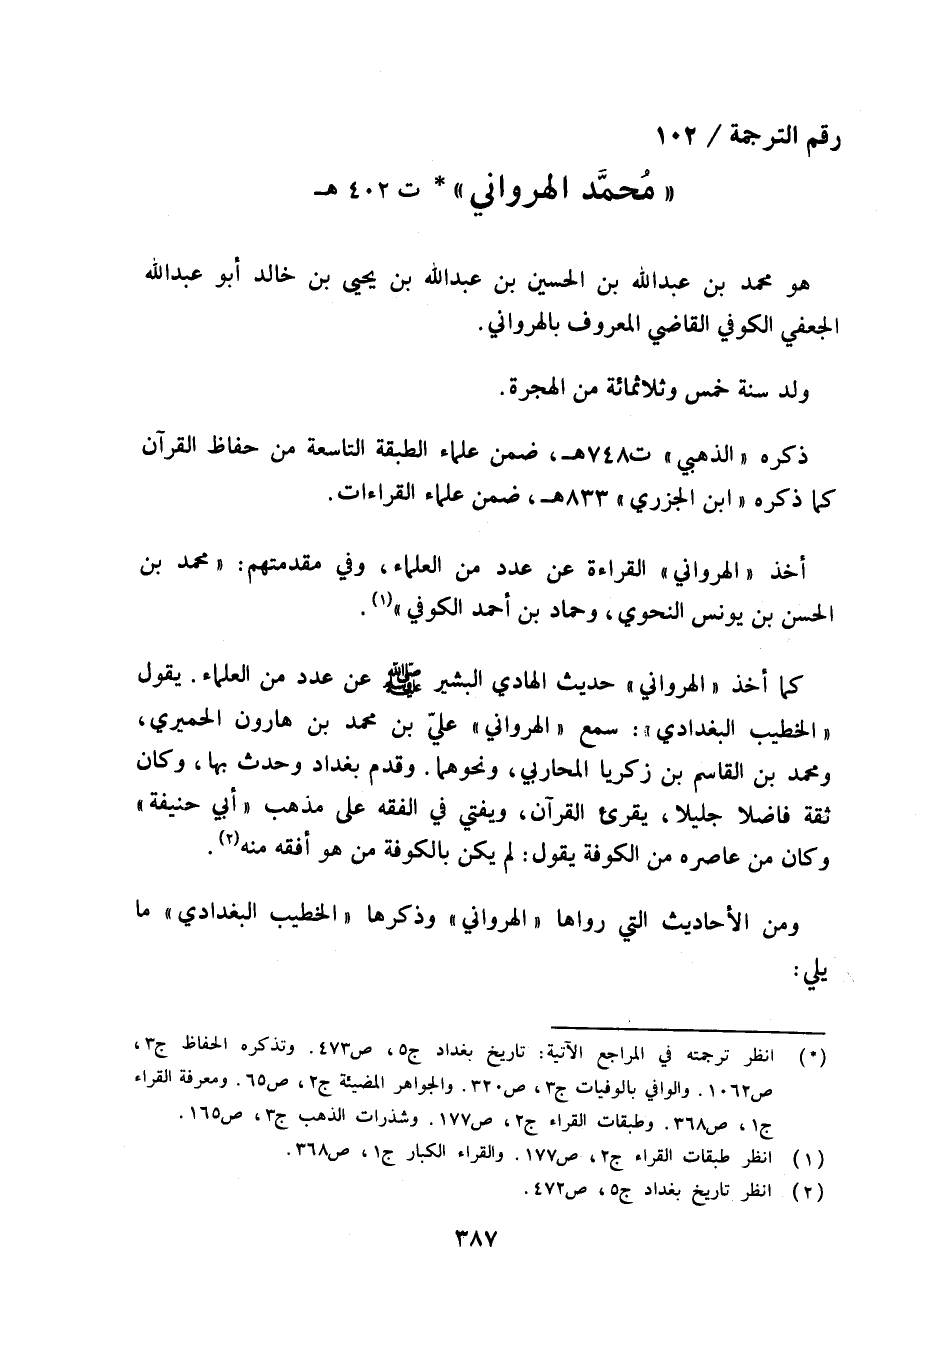 رقم الترجمة / ١٠٢
« مُحمَّد الهرواني» * ت ٤٠٢ هـ
هو محمد بن عبدالله بن الحسين بن عبدالله بن يحيى بن خالد أبو عبدالله
الجعفي الكوفي القاضي المعروف بالهرواني.
ولد سنة خمس وثلاثمائة من الهجرة.
ذكره «الذهبي» ت٧٤٨هـ، ضمن علماء الطبقة التاسعة من حفاظ القرآن
كما ذكره «ابن الجزري» ٨٣٣هـ، ضمن علماء القراءات.
أخذ «الهرواني» القراءة عن عدد من العلماء، وفي مقدمتهم: «محمد بن
الحسن بن يونس النحوي، وحماد بن أحمد الكوفي»(١).
كما أخذ «الهرواني» حديث الهادي البشير ﷺ عن عدد من العلماء. يقول
«الخطيب البغدادي»: سمع «الهرواني» عليّ بن محمد بن هارون الحميري،
ومحمد بن القاسم بن زكريا المحاربي، ونحوهما. وقدم بغداد وحدث بها، وكان
ثقة فاضلا جليلا، يقرئ القرآن، ويفتي في الفقه على مذهب «أبي حنيفة»
وكان من عاصره من الكوفة يقول: لم يكن بالكوفة من هو أفقه منه(٢).
ومن الأحاديث التي رواها «الهرواني» وذكرها «الخطيب البغدادي» ما
يلي:
(*) انظر ترجمته في المراجع الآتية: تاريخ بغداد ج٥، ص٤٧٣. وتذكره الحفاظ ج٣،
ص١٠٦٢. والوافي بالوفيات ج٣، ص٣٢٠. والجواهر المضيئة ج٢، ص٦٥. ومعرفة القراء
ج١، ص٣٦٨. وطبقات القراء ج٢، ص١٧٧. وشذرات الذهب ج٣، ص١٦٥.
(١) انظر طبقات القراء ج٢، ص١٧٧. والقراء الكبار ج١، ص٣٦٨.
(٢) انظر تاريخ بغداد ج٥، ص٤٧٢.
٣٨٧